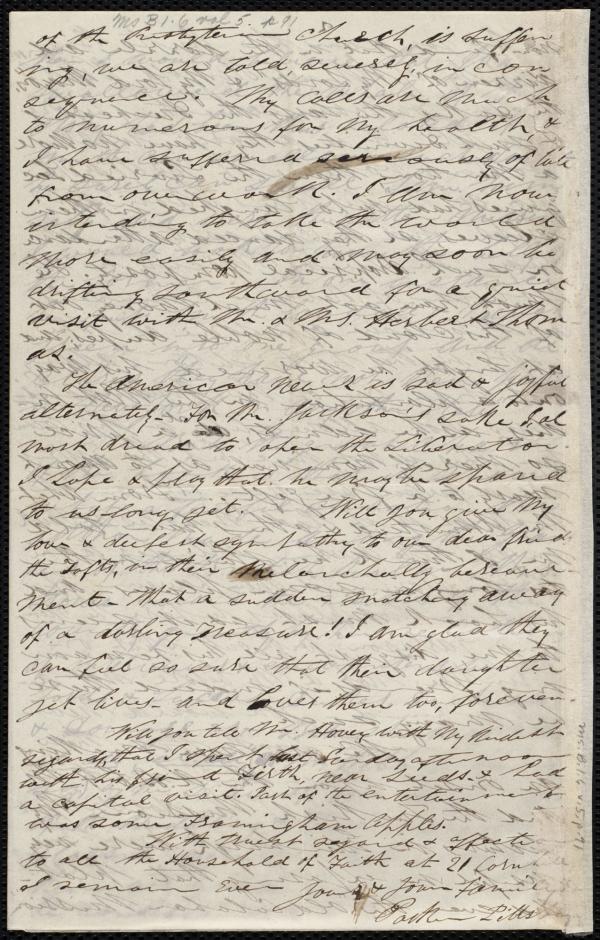 Ms B 1.6 vol 5. p 91
of the Presbyterian Church, is suffer
ing, we are told, severely, in con
sequence. My calls are much
to numerous for my health, &
I have suffered seriously of late
from overwork. I am now
intending to take the world
more easily and may soon be
drifting southward for a quiet
visit with Mr. & Mrs. Herbert Thom
as.
The American news is sad & joyful
alternately. For Mr. Jackson's sake I al
most dread to open the Liberator
I hope & pray that he may be spared
to us long yet. Will you give my
love & deepest sympathy to our dear friends
the Tafts, in their melancholly bereave-
ment. What a sudden snatching away
of a darling treasure! I am glad they
can feel so sure that their daughter
yet lives and loves them too, forever.
Will you tell Mr. Hovey, with my kindest
regard, that I spent last Sunday afternoon
with his friend Firth, near Leeds, & had
a capital visit. Part of the entertainment
was some Framingham apples.
With truest regard & affection
to all the Household of Faith at 21 Corn
I remain Ever Yours & Your family
Parker Pills